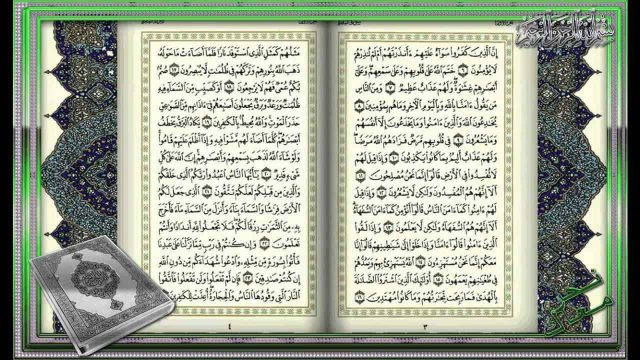 إِنَّ الَّذِينَ كَفَرُوا سَوَاءٌ عَلَيْهِمْ ءَأَنذَرْتَهُمْ أَمْ لَمْ تُنذِرْهُمْ
لَا يُؤْمِنُونَ خَتَمَ اللَّهُ عَلَى قُلُوبِهِمْ وَعَلَى سَمْعِهِمْ وَعَلَى
أَبْصَارِهِمْ غِشَاوَةٌ وَلَهُمْ عَذَابٌ عَظِيمٌ وَمِنَ النَّاسِ
مَن يَقُولُ ءَامَنَّا بِاللَّهِ وَبِالْيَوْمِ الْآخِرِ وَمَا هُم بِمُؤْمِنِينَ
يُخَادِعُونَ اللَّهَ وَالَّذِينَ ءَامَنُوا وَمَا يَخْدَعُونَ إِلَّا أَنفُسَهُمْ
وَمَا يَشْعُرُونَ فِي قُلُوبِهِم مَّرَضٌ فَزَادَهُمُ اللَّهُ مَرَضًا
وَلَهُمْ عَذَابٌ أَلِيمٌ بِمَا كَانُوا يَكْذِبُونَ وَإِذَا قِيلَ لَهُمْ
لَا تُفْسِدُوا فِي الْأَرْضِ قَالُوا إِنَّمَا نَحْنُ مُصْلِحُونَ
أَلَا إِنَّهُمْ هُمُ الْمُفْسِدُونَ وَلَكِن لَّا يَشْعُرُونَ وَإِذَا قِيلَ
لَهُمْ ءَامِنُوا كَمَا ءَامَنَ النَّاسُ قَالُوا أَنُؤْمِنُ كَمَا ءَامَنَ السُّفَهَاءُ
أَلَا إِنَّهُمْ هُمُ السُّفَهَاءُ وَلَكِن لَّا يَعْلَمُونَ وَإِذَا لَقُوا
الَّذِينَ ءَامَنُوا قَالُوا ءَامَنَّا وَإِذَا خَلَوْا إِلَى شَيَاطِينِهِمْ قَالُوا إِنَّا
مَعَكُمْ إِنَّمَا نَحْنُ مُسْتَهْزِءُونَ اللَّهُ يَسْتَهْزِئُ بِهِمْ وَيَمُدُّهُمْ
فِي طُغْيَانِهِمْ يَعْمَهُونَ أُولَئِكَ الَّذِينَ اشْتَرَوُا الضَّلَالَةَ
بِالْهُدَى فَمَا رَبِحَت تِّجَارَتُهُمْ وَمَا كَانُوا مُهْتَدِينَ
٣
مَثَلُهُمْ كَمَثَلِ الَّذِي اسْتَوْقَدَ نَارًا فَلَمَّا أَضَاءَتْ مَا حَوْلَهُ
ذَهَبَ اللَّهُ بِنُورِهِمْ وَتَرَكَهُمْ فِي ظُلُمَاتٍ لَّا يُبْصِرُونَ
صُمٌّ بُكْمٌ عُمْيٌ فَهُمْ لَا يَرْجِعُونَ أَوْ كَصَيِّبٍ مِّنَ السَّمَاءِ فِيهِ
ظُلُمَاتٌ وَرَعْدٌ وَبَرْقٌ يَجْعَلُونَ أَصَابِعَهُمْ فِي ءَاذَانِهِم مِّنَ الصَّوَاعِقِ
حَذَرَ الْمَوْتِ وَاللَّهُ مُحِيطٌ بِالْكَافِرِينَ يَكَادُ الْبَرْقُ يَخْطَفُ
أَبْصَارَهُمْ كُلَّمَا أَضَاءَ لَهُم مَّشَوْا فِيهِ وَإِذَا أَظْلَمَ عَلَيْهِمْ قَامُوا
وَلَوْ شَاءَ اللَّهُ لَذَهَبَ بِسَمْعِهِمْ وَأَبْصَارِهِمْ إِنَّ اللَّهَ عَلَى كُلِّ
شَيْءٍ قَدِيرٌ يَاأَيُّهَا النَّاسُ اعْبُدُوا رَبَّكُمُ الَّذِي خَلَقَكُمْ
وَالَّذِينَ مِن قَبْلِكُمْ لَعَلَّكُمْ تَتَّقُونَ الَّذِي جَعَلَ لَكُمُ
الْأَرْضَ فِرَاشًا وَالسَّمَاءَ بِنَاءً وَأَنزَلَ مِنَ السَّمَاءِ مَاءً فَأَخْرَجَ
بِهِ مِنَ الثَّمَرَاتِ رِزْقًا لَّكُمْ فَلَا تَجْعَلُوا لِلَّهِ أَندَادًا وَأَنتُمْ
تَعْلَمُونَ وَإِن كُنتُمْ فِي رَيْبٍ مِّمَّا نَزَّلْنَا عَلَى عَبْدِنَا
فَأْتُوا بِسُورَةٍ مِّن مِّثْلِهِ وَادْعُوا شُهَدَاءَكُم مِّن دُونِ اللَّهِ
إِن كُنتُمْ صَادِقِينَ فَإِن لَّمْ تَفْعَلُوا وَلَن تَفْعَلُوا فَاتَّقُوا
النَّارَ الَّتِي وَقُودُهَا النَّاسُ وَالْحِجَارَةُ أُعِدَّتْ لِلْكَافِرِينَ
٤